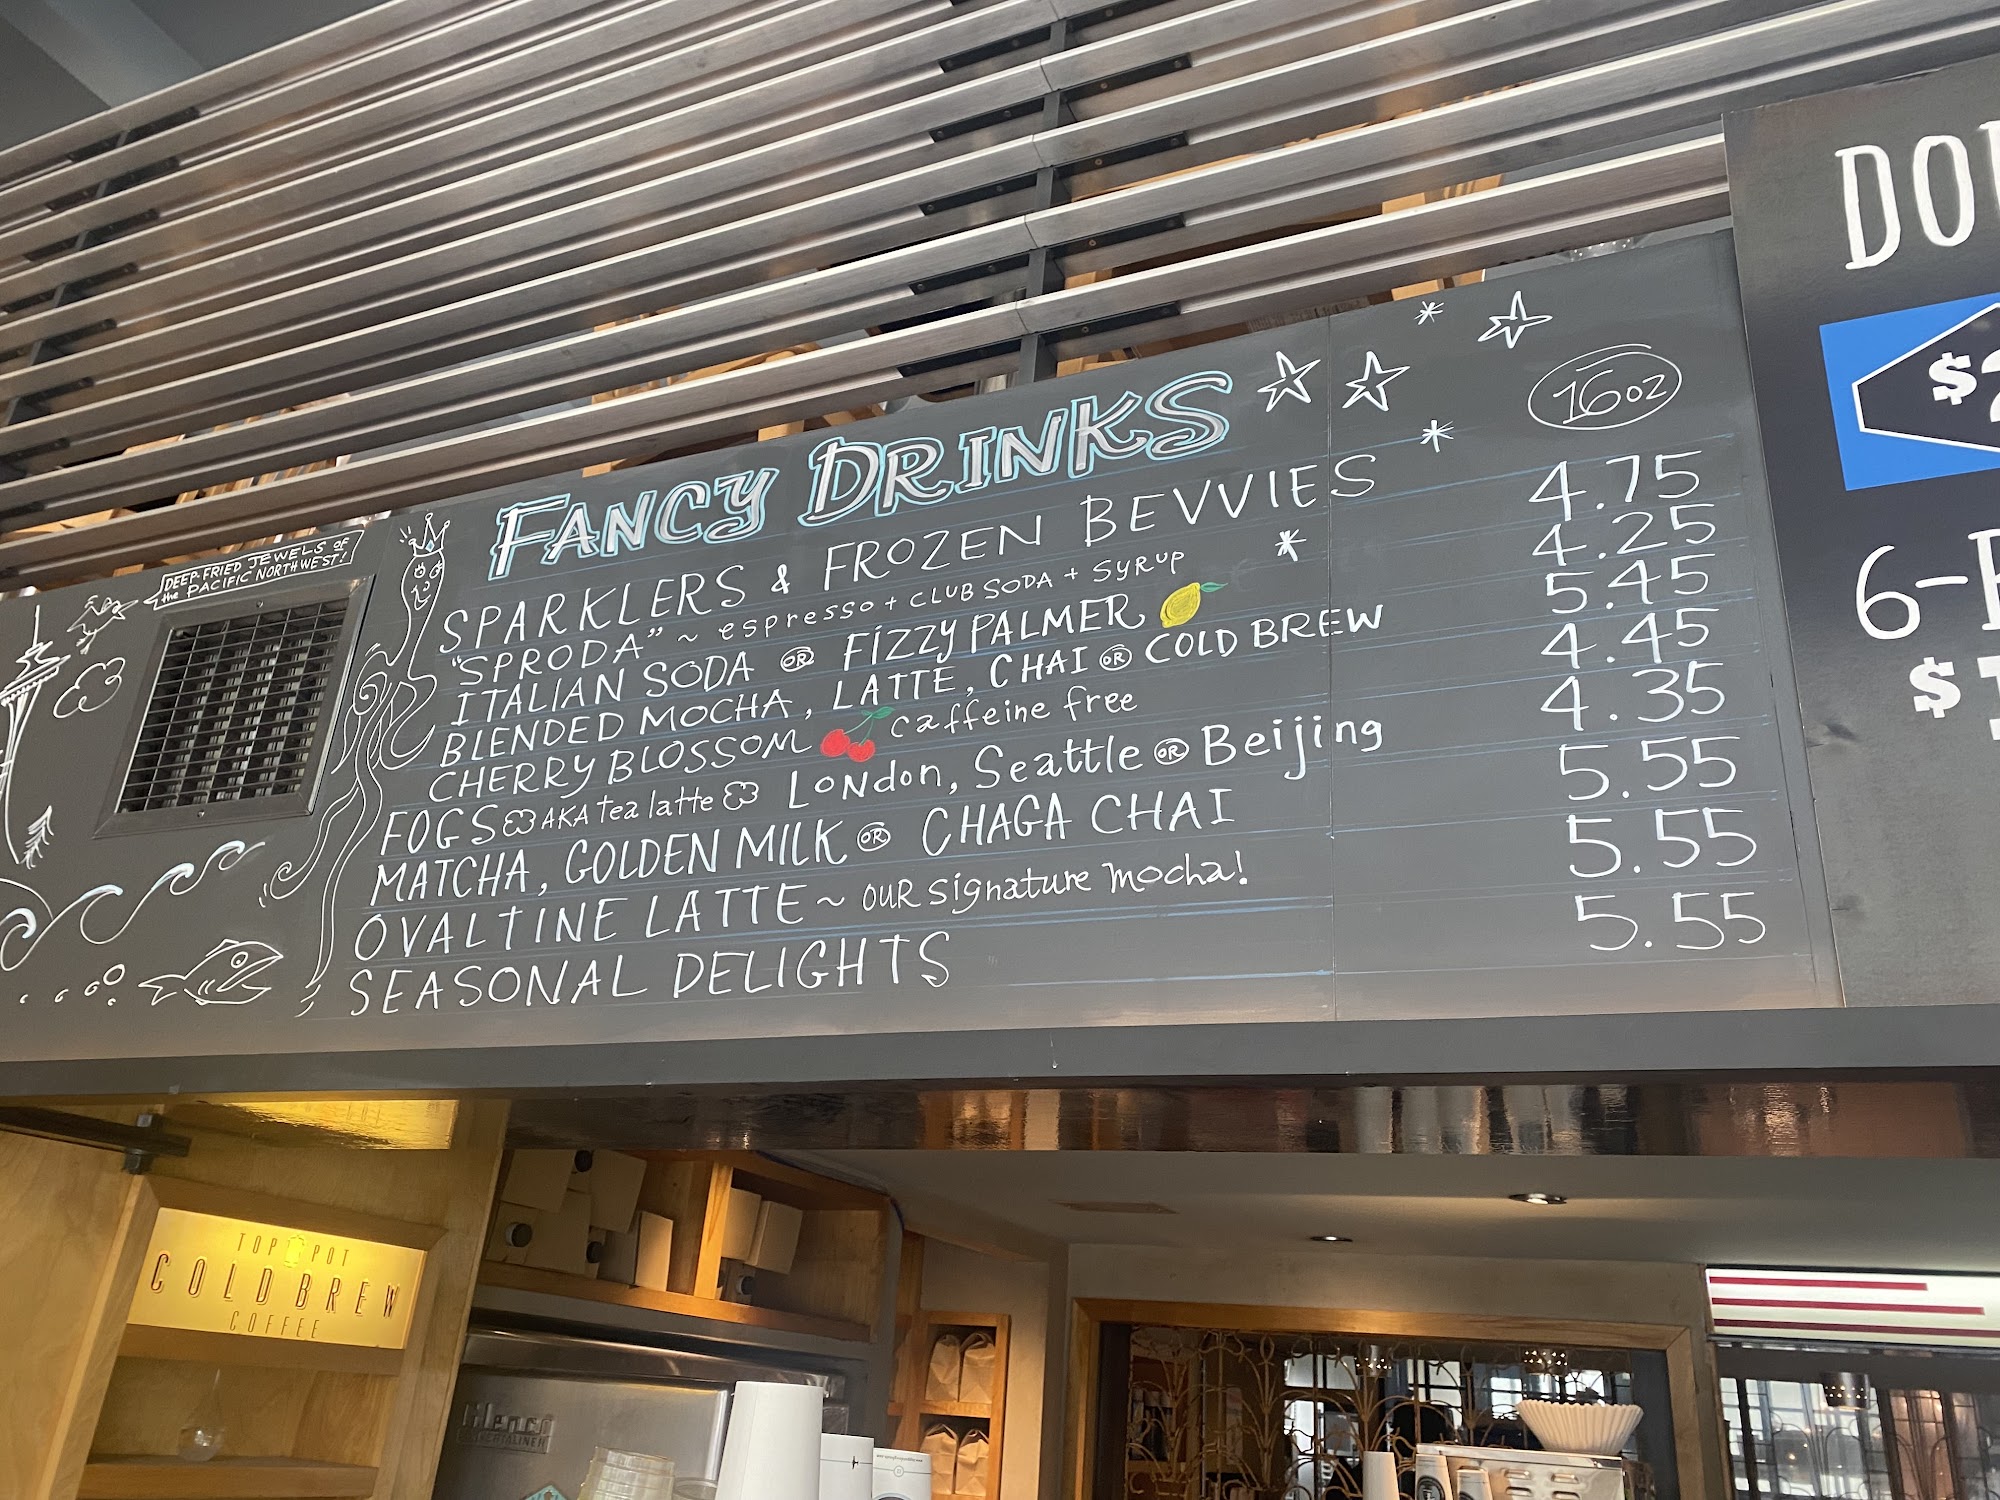 DEEP-FRIED JEWELS OF
the PACIFIC NORTHWEST!
FANCY DRINKS
16oz
SPARKLERS & FROZEN BEVVIES
"SPRODA" ~ espresso + CLUB SODA + SYRUP 4.75
ITALIAN SODA OR FIZZY PALMER 4.25
BLENDED MOCHA, LATTE, CHAI OR COLD BREW 5.45
CHERRY BLOSSOM caffeine free 4.45
FOGS AKA tea latte LONdon, Seattle OR Beijing 4.35
MATCHA, GOLDEN MILK OR CHAGA CHAI 5.55
OVALTINE LATTE ~ OUR signature mocha! 5.55
SEASONAL DELIGHTS 5.55
$
6-
$
TOP POT
COLD BREW
COFFEE